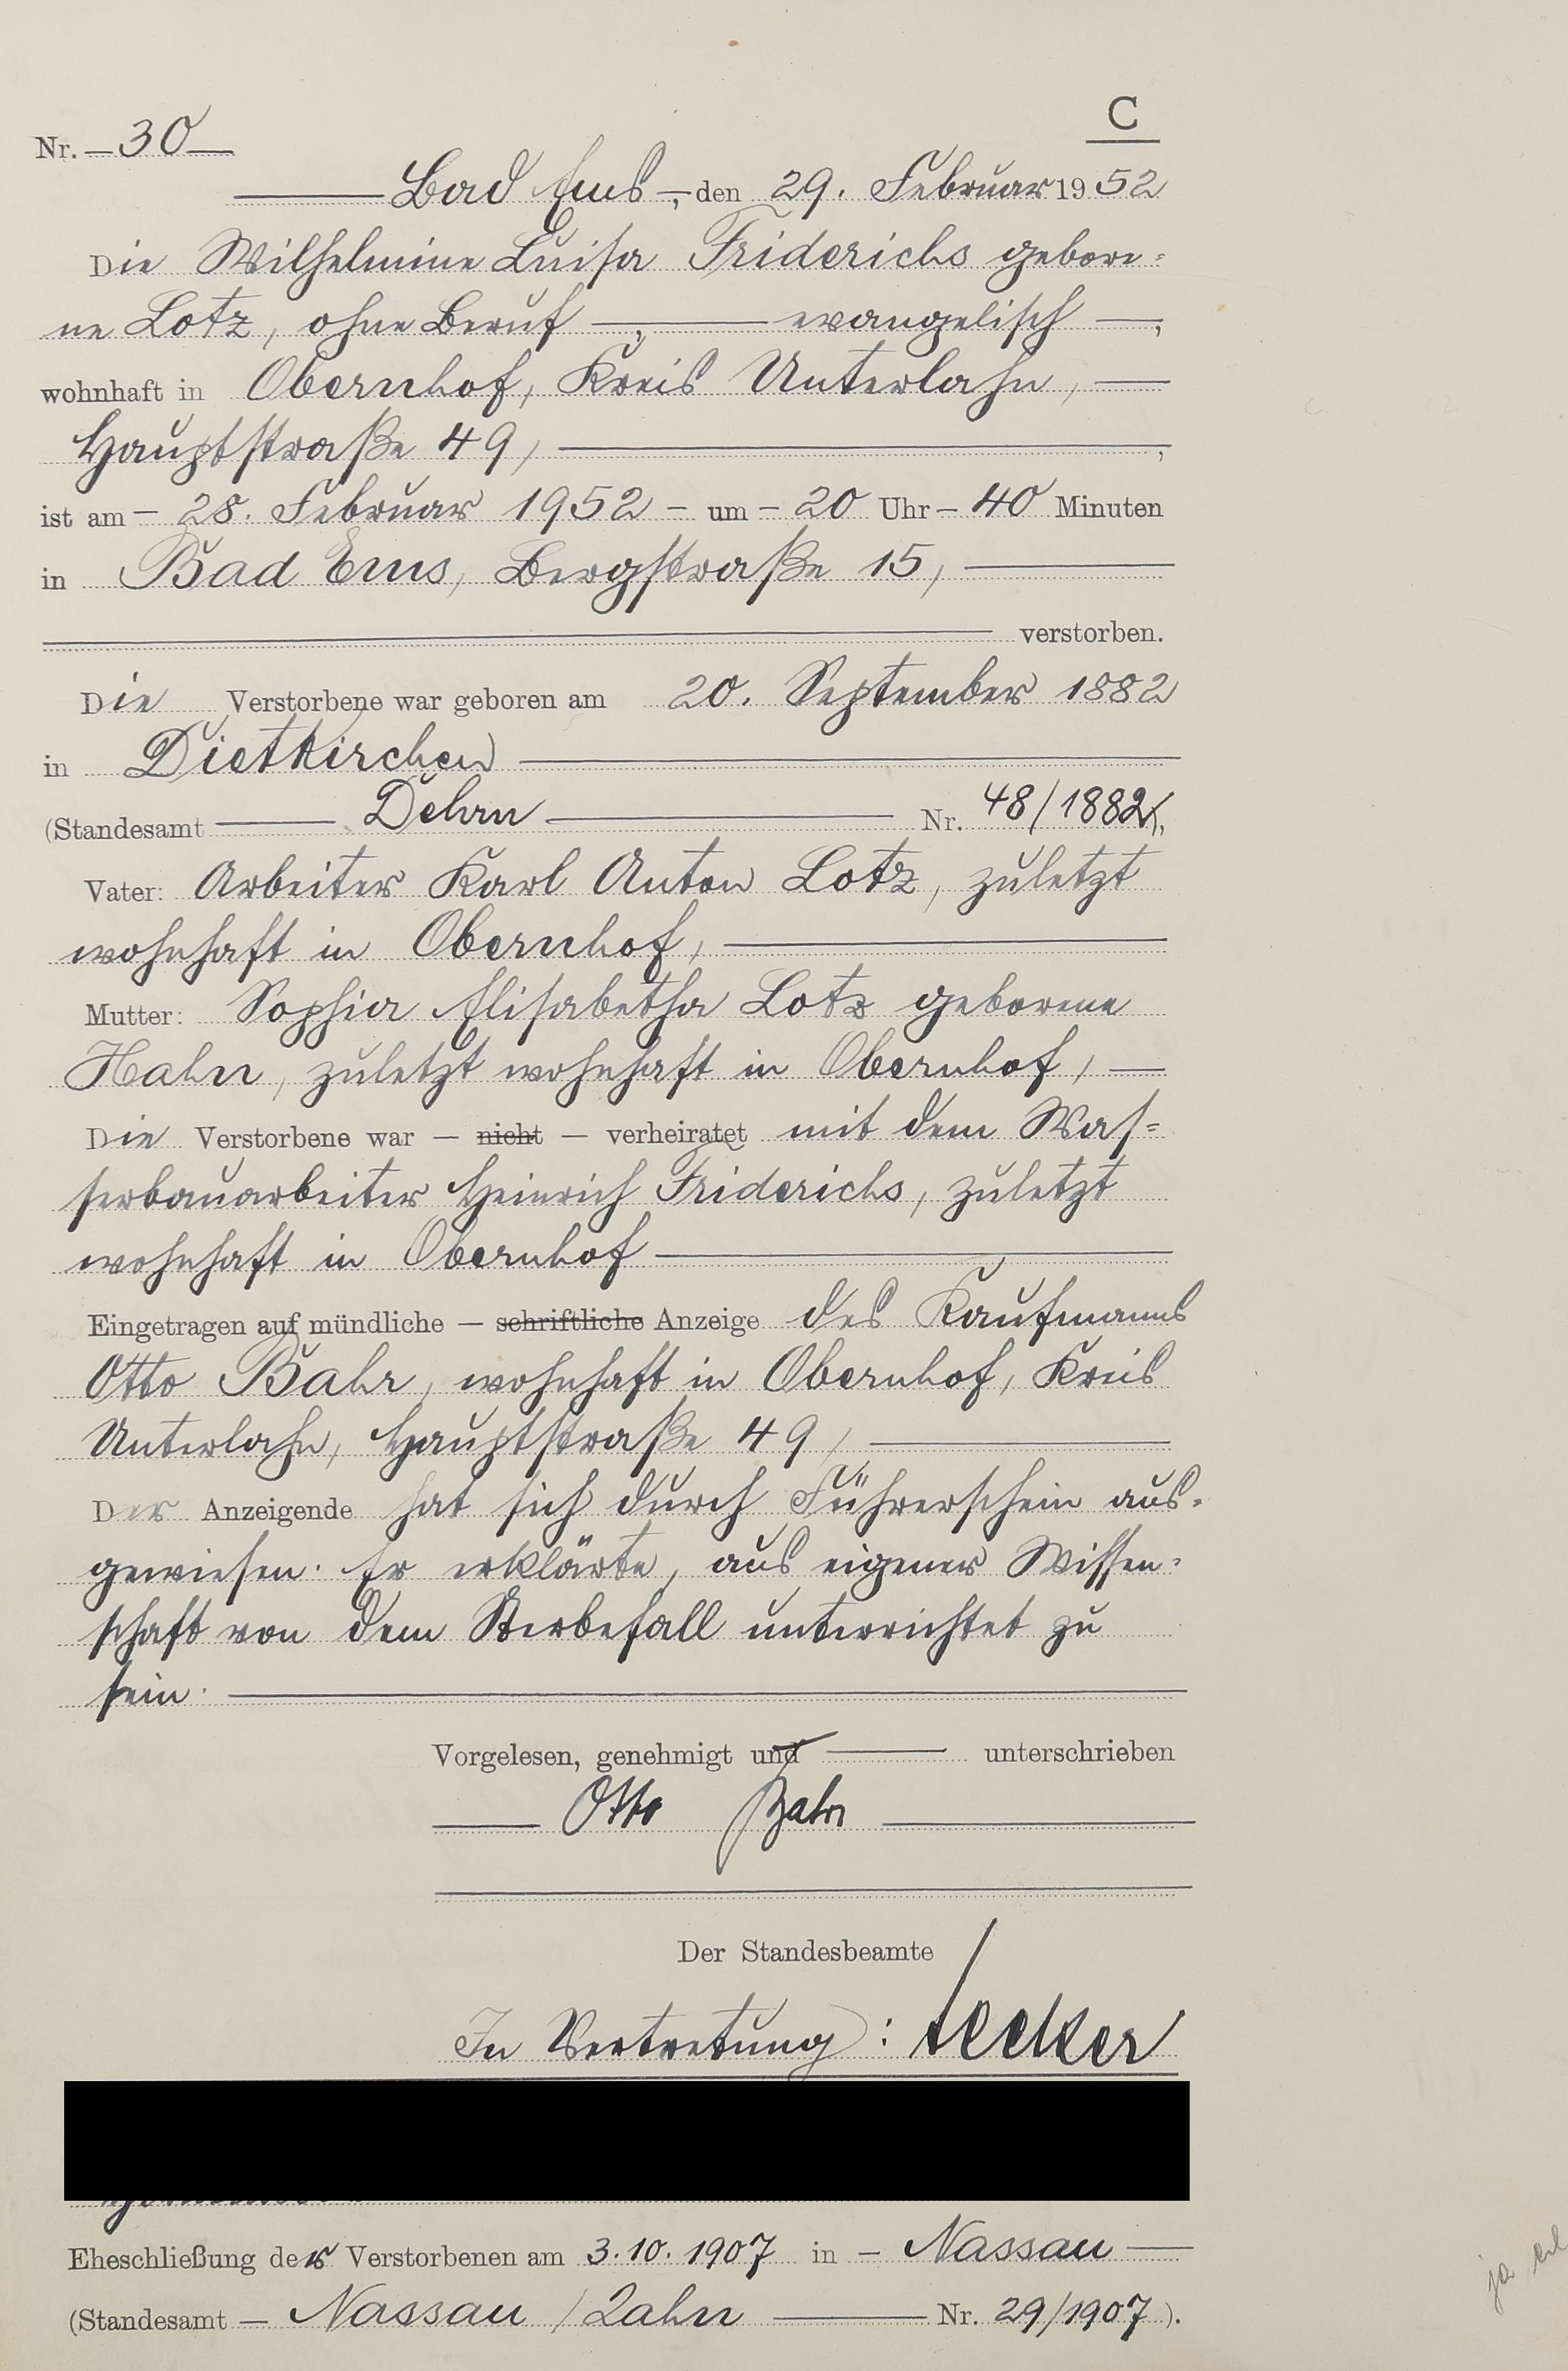 C
Nr. 30
Bad Ems, den 29. Februar 1952
Die Wilhelmine Luise Friderichs gebore-
ne Lotz, ohne Beruf, evangelisch,
wohnhaft in Obernhof, Kreis Unterlahn,
Hauptstraße 49,
ist am 28. Februar 1952 um 20 Uhr 40 Minuten
in Bad Ems, Bergstraße 15,
verstorben.
Die Verstorbene war geboren am 20. September 1882
in Dietkirchen
(Standesamt Dehrn Nr. 48/1882),
Vater: Arbeiter Karl Anton Lotz, zuletzt
wohnhaft in Obernhof,
Mutter: Sophia Elisabetha Lotz geborene
Hahn, zuletzt wohnhaft in Obernhof,
Die Verstorbene war — nicht — verheiratet mit dem Was=
serbauarbeiter Heinrich Friderichs, zuletzt
wohnhaft in Obernhof
Eingetragen auf mündliche — schriftliche Anzeige des Kaufmanns
Otto Bahr, wohnhaft in Obernhof, Kreis
Unterlahn, Hauptstraße 49,
Der Anzeigende hat sich durch Führerschein aus-
gewiesen. Er erklärte, aus eigener Wissen-
schaft von dem Sterbefall unterrichtet zu
sein.
Vorgelesen, genehmigt und unterschrieben
Otto Bahr
Der Standesbeamte
In Vertretung:
Eheschließung der Verstorbenen am 3.10.1907 in Nassau
(Standesamt Nassau/Lahn Nr. 29/1907).